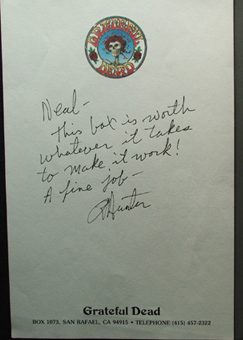 GRATEFUL DEAD
Neal -
this box is worth
whatever it takes
to make it work!
A fine job -
RHunter
Grateful Dead
BOX 1073, SAN RAFAEL, CA 94915 • TELEPHONE (415) 457-2322